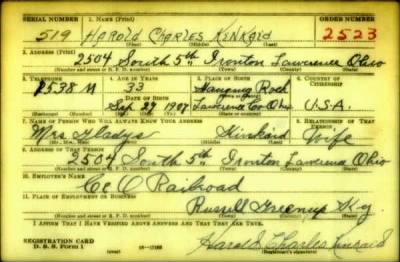 SERIAL NUMBER 1. NAME (Print) ORDER NUMBER
519 HAROLD CHARLES KINKAID 2523
(First) (Middle) (Last)
2. ADDRESS (Print)
2504 South 5th Ironton Lawrence Ohio
(Number and street or R. F. D. number) (Town) (County) (State)
3. TELEPHONE 4. AGE IN YEARS 5. PLACE OF BIRTH 6. COUNTRY OF CITIZENSHIP
2538 M 33 Hanging Rock
DATE OF BIRTH (Town or county)
Sep. 29 1907 Lawrence Co. Ohio U.S.A.
(Mo.) (Day) (Yr.) (State or country)
7. NAME OF PERSON WHO WILL ALWAYS KNOW YOUR ADDRESS 8. RELATIONSHIP OF THAT PERSON
Mrs. Gladys Kinkaid Wife
(Mr., Mrs., Miss) (First) (Middle) (Last)
9. ADDRESS OF THAT PERSON
2504 South 5th Ironton Lawrence Ohio
(Number and street or R. F. D. number) (Town) (County) (State)
10. EMPLOYER'S NAME
C & O Railroad
11. PLACE OF EMPLOYMENT OR BUSINESS
Russell Greenup Ky
(Number and street or R. F. D. number) (Town) (County) (State)
I AFFIRM THAT I HAVE VERIFIED ABOVE ANSWERS AND THAT THEY ARE TRUE.
REGISTRATION CARD
D. S. S. Form 1 Harold Charles Kinkaid
(Registrant's signature)